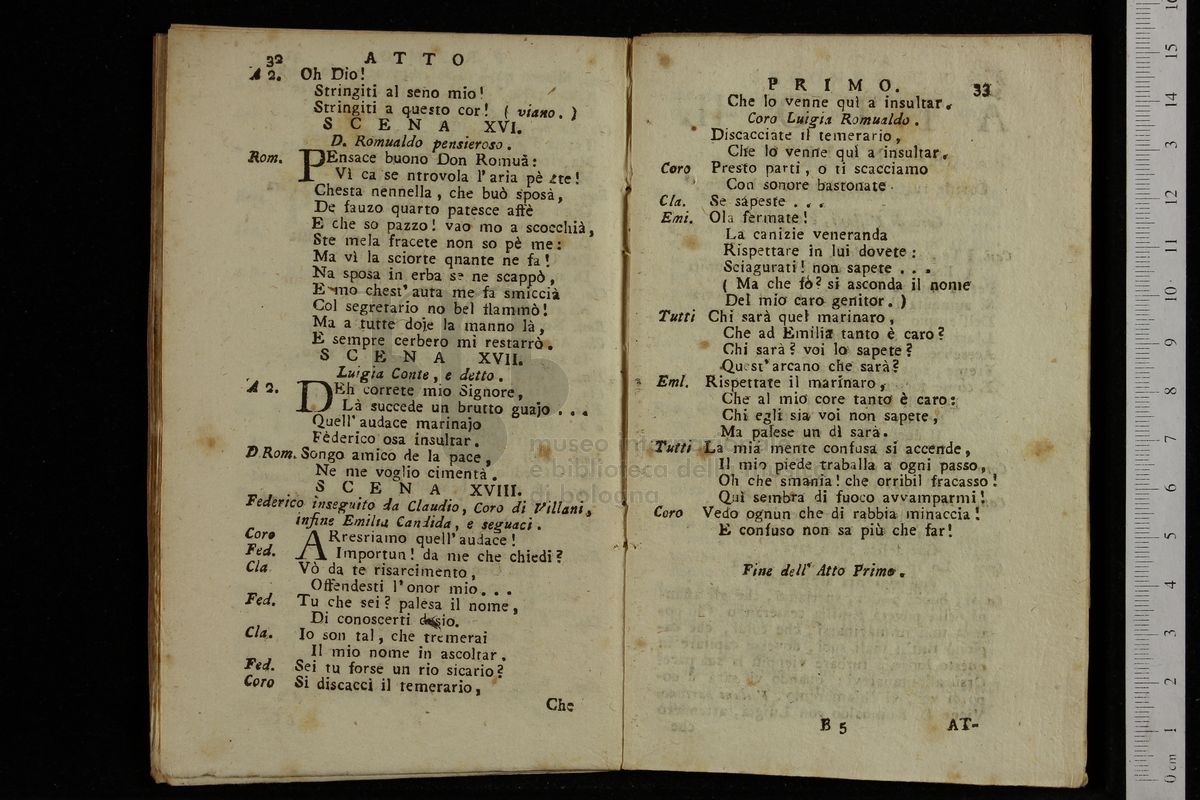 32 ATTO
A 2. Oh Dio!
Stringiti al seno mio!
Stringiti a questo cor! ( viano. )
SCENA XVI.
D. Romualdo pensieroso.
Rom. PEnsace buono Don Romuà:
Vì ca se ntrovola l'aria pè ste!
Chesta nennella, che buò sposà,
De fauzo quarto patesce affè
E che so pazzo! vao mo a scocchià,
Ste mela fracete non so pè me:
Ma vì la sciorte qnante ne fa!
Na sposa in erba se ne scappò,
E mo chest' auta me fa smiccià
Col segretario no bel flammò!
Ma a tutte doje la manno là,
E sempre cerbero mi restarrò.
SCENA XVII.
Luigia Conte, e detto.
A 2. DEh correte mio Signore,
Là succede un brutto guajo ...
Quell' audace marinajo
Fèderico osa insultar.
D Rom. Songo amico de la pace,
Ne me voglio cimentà.
SCENA XVIII.
Federico inseguito da Claudio, Coro di Villani,
infine Emilia Candida, e seguaci.
Coro ARresriamo quell' audace!
Fed. Importun! da me che chiedi?
Cla Vò da te risarcimento,
Offendesti l'onor mio...
Fed. Tu che sei? palesa il nome,
Di conoscerti desio.
Cla. Io son tal, che tremerai
Il mio nome in ascoltar.
Fed. Sei tu forse un rio sicario?
Coro Si discacci il temerario,
Che
PRIMO. 33
Che lo venne quì a insultar.
Coro Luigia Romualdo.
Discacciate il temerario,
Che lo venne quì a insultar.
Coro Presto parti, o ti scacciamo
Con sonore bastonate
Cla. Se sapeste ...
Emi. Ola fermate!
La canizie veneranda
Rispettare in lui dovete:
Sciagurati! non sapete ...
( Ma che fò? si asconda il nome
Del mio caro genitor. )
Tutti Chi sarà quel marinaro,
Che ad Emilia tanto è caro?
Chi sarà? voi lo sapete?
Quest' arcano che sarà?
Eml. Rispettate il marinaro,
Che al mio core tanto è caro:
Chi egli sia voi non sapete,
Ma palese un dì sarà.
Tutti La mia mente confusa si accende,
Il mio piede traballa a ogni passo,
Oh che smania! che orribil fracasso!
Quì sembra di fuoco avvamparmi!
Coro Vedo ognun che di rabbia minaccia!
E confuso non sa più che far!
Fine dell' Atto Primo.
B 5 AT-
museo internazionale
e biblioteca della musica
di bologna
0 cm 1 2 3 4 5 6 7 8 9 10 11 12 13 14 15